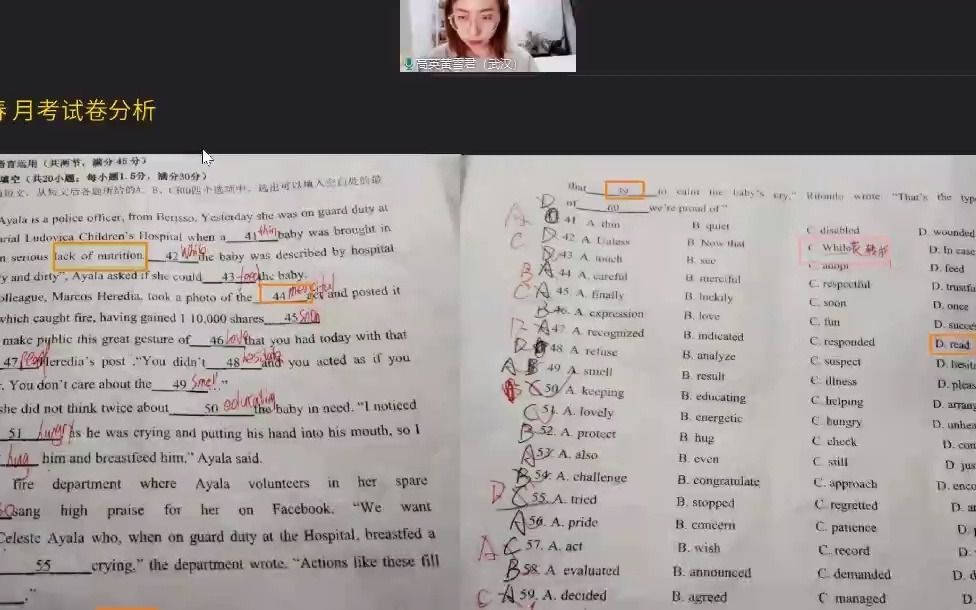 高英黄雪君（武汉）
春 月考试卷分析
语言运用（共两节，满分 45 分）
填空（共20小题；每小题1.5分，满分30分）
短文，从短文后各题所给的A、B、C和D四个选项中，选出可以填入空白处的最
Ayala is a police officer, from Berisso. Yesterday she was on guard duty at
Ludovica Children's Hospital when a 41 thin baby was brought in
serious lack of nutrition. 42 While the baby was described by hospital
y and dirty", Ayala asked if she could 43 feed the baby.
olleague, Marcos Heredia, took a photo of the 44 merciful act and posted it
which caught fire, having gained 1 10,000 shares 45 soon
make public this great gesture of 46 love that you had today with that
47 Heredia's post ."You didn't 48 hesitate and you acted as if you
. You don't care about the 49 smell ."
she did not think twice about 50 educating the baby in need. "I noticed
51 hungry as he was crying and putting his hand into his mouth, so I
hug him and breastfeed him," Ayala said.
fire department where Ayala volunteers in her spare
sang high praise for her on Facebook. "We want
Celeste Ayala who, when on guard duty at the Hospital, breastfed a
55 crying," the department wrote. "Actions like these fill
."
that 59 to calm the baby's cry," Ritondo wrote "That's the type
of 60 we're proud of"
A D 41 A thin B quiet C disabled D. wounded
C D 42 A Unless B Now that C While D. In case
D 43 A touch B see C adopt D. feed
B A 44 A. careful B. merciful C. respectful
C A 45. A. finally B. luckily C. soon D. once
B 46. A. expression B. love C. fun
D A 47 A. recognized B. indicated C. responded D. read
D 48 A. refuse B. analyze C. suspect
A B 49 A. smell B. result C. illness
B C 50 A. keeping B. educating C. helping
C 51. A. lovely B. energetic C. hungry
B 52. A. protect B hug C. check
A 53. A. also B. even C. still
B 54. A. challenge B. congratulate C. approach
D C 55. A. tried B. stopped C. regretted
A 56. A. pride B. concern C. patience
A C 57. A. act B. wish C. record
B 58. A evaluated B. announced C. demanded
C A 59. A. decided B. agreed C managed